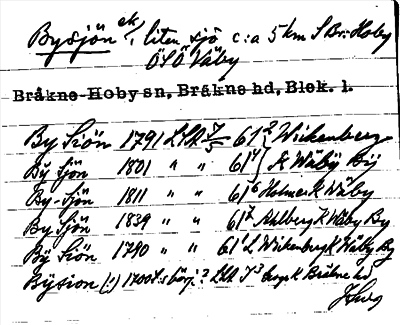 Bysjön ek., liten sjö c:a 5 km S Br:Hoby
ÖSÖ Väby
Bråkne-Hoby sn, Bråkne hd, Blek. l.
By Siön 1791 LSA 61² Wickenberg
By Sjön 1801 " " 61⁴ K Wäby By
By-Sjön 1811 " " 61⁶ Holmer K Wäby
By Sjön 1839 " " 61⁷ Ahlberg K Wäby By
By Siön 1790 " " 61¹ L. Wikenberg K Wäby By
Bysion (!) 1700t:s börj? LSA J³ K Bräkne hd